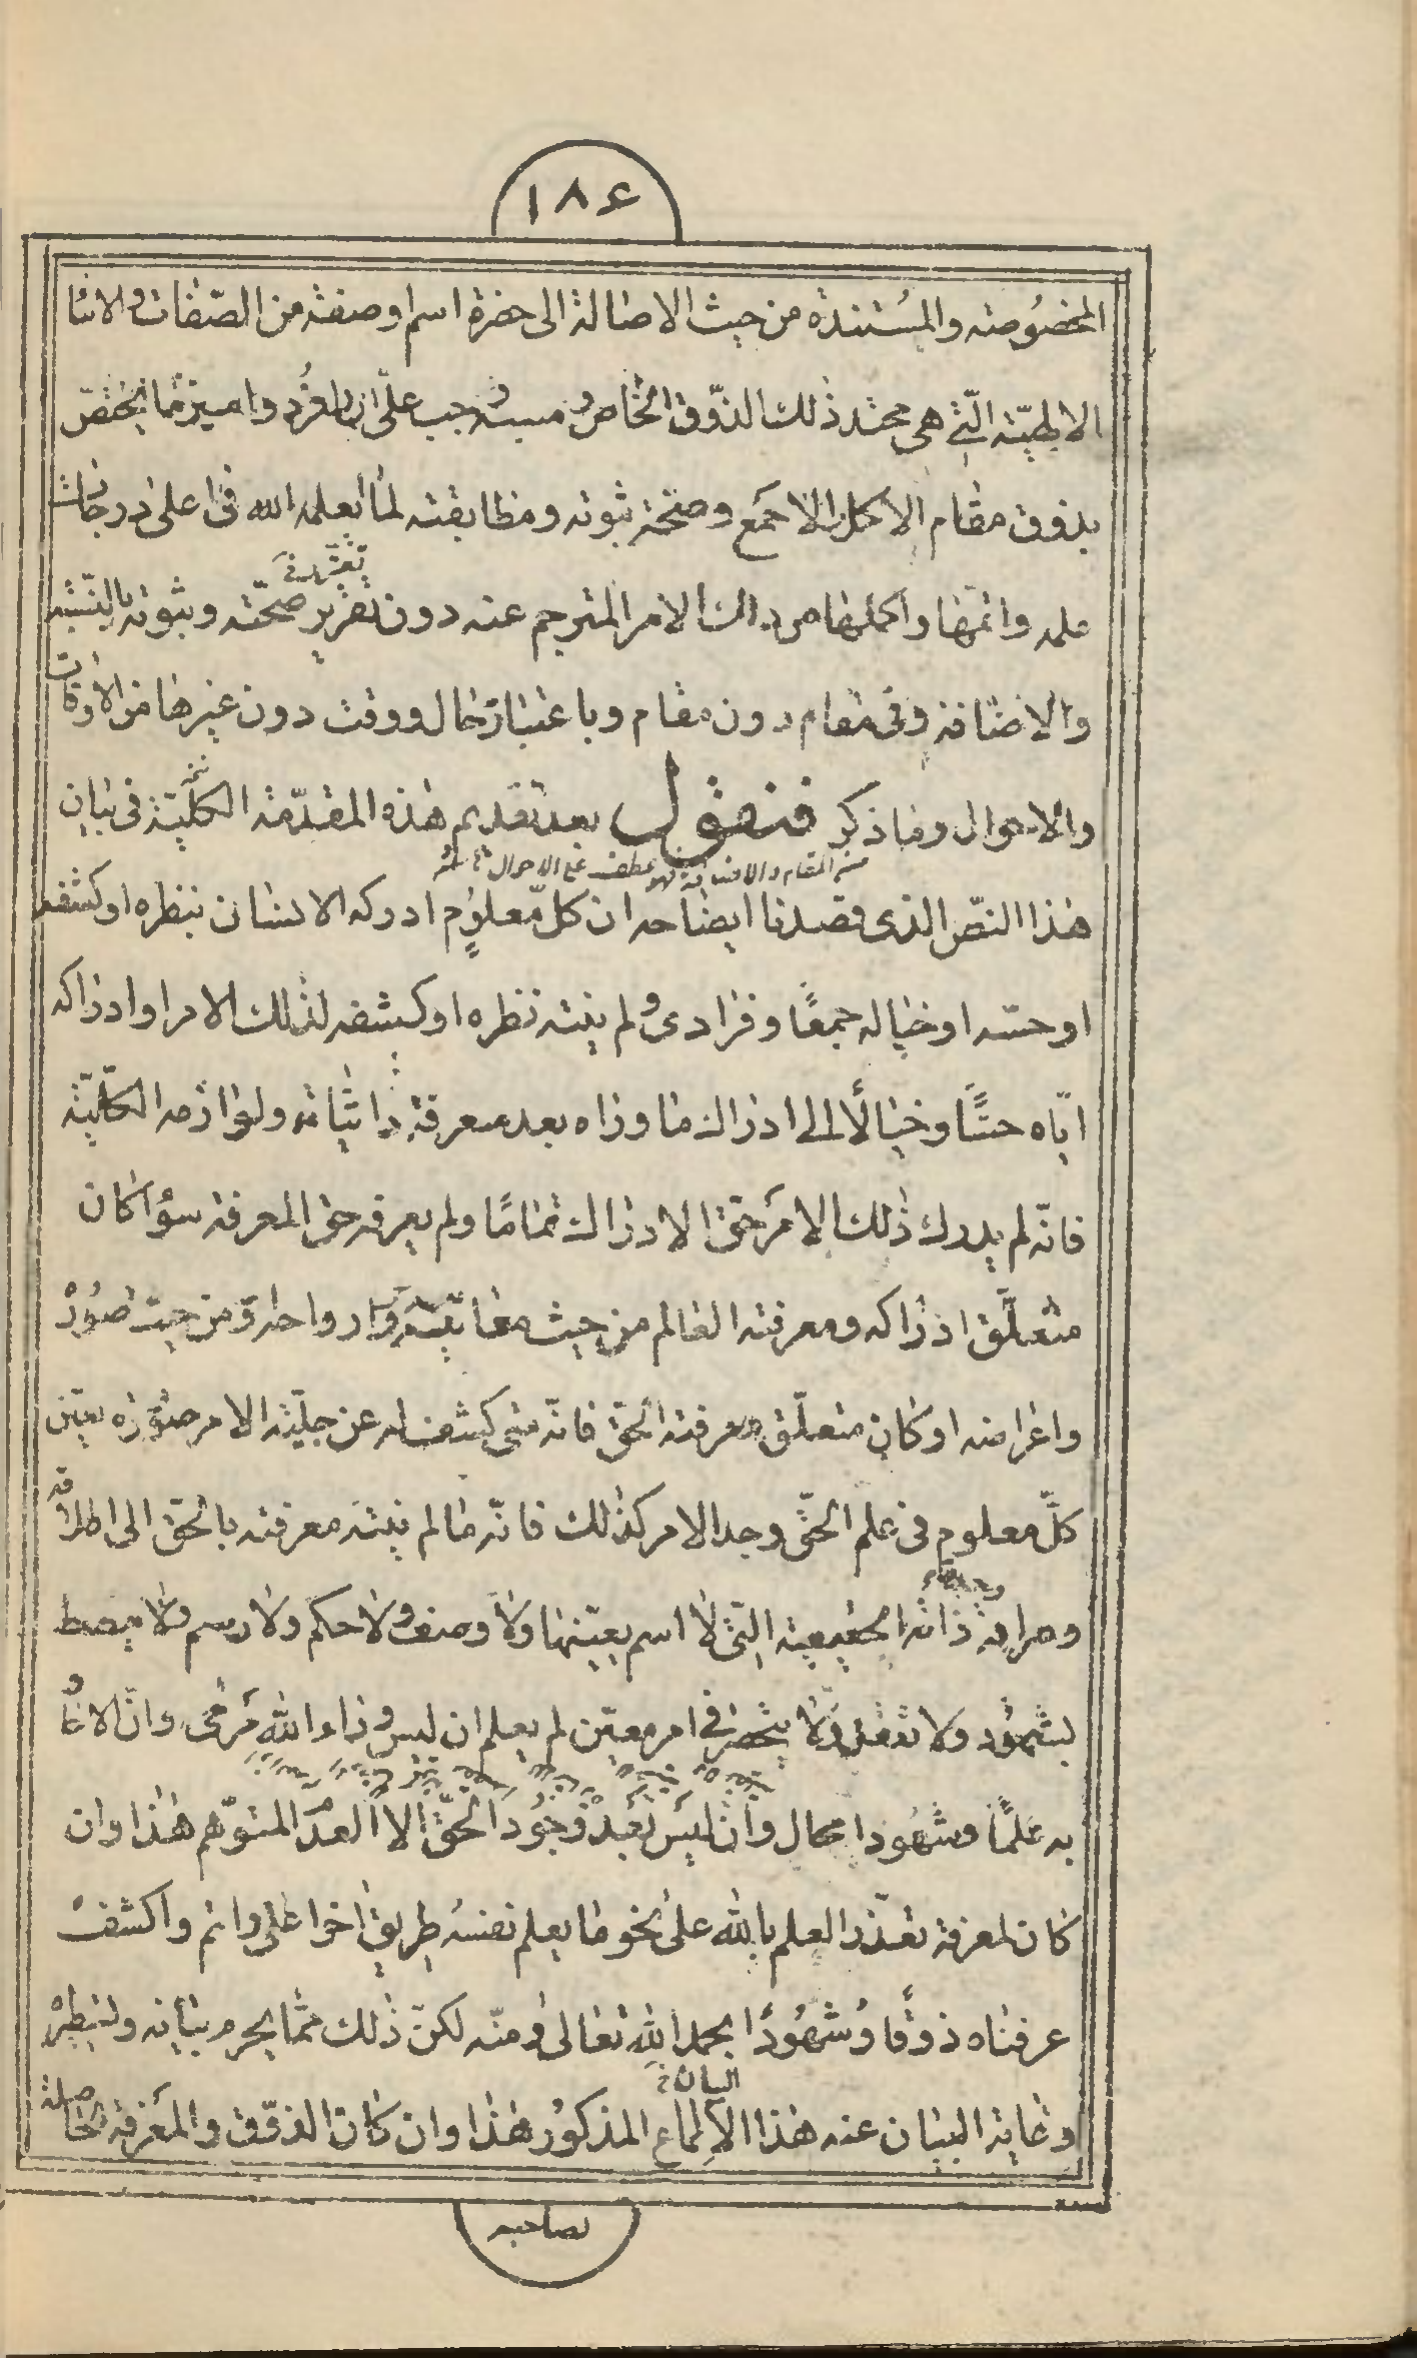 ١٨۶
المخصوصه والمستندة من حيث الاصالة الى حضرة اسم او صفة من الصّفات والاسما
الالهيّة الّتى هى محتد ذلك الذّوق الخاصّ و وجب علىّ ان افرد واميز ما يختصّ
بذوق مقام الاكمل الاجمع وصحّة ثبوته ومطابقته لما يعلمه الله فى اعلى درجات
علمه واتمّها واكملها من ذلك الامر المترجم عنه دون تقرير صحّته وثبوته بالنّسبة
والاضافة وفى مقام دون مقام وباعتبار حال ووقت دون غيرها من الاوقات
والاحوال وما ذكر فنقول بعد تقديم هذه المقدّمة الكلّيّة فى بيان
من المقام والاضافة فهو عطف على الاحوال
هذا النصّ الذى قصدنا ايضاحه ان كلّ معلوم ادركه الانسان بنظره او كشفه
او حسّه او خياله جمعًا وفرادى ولم ينته نظره او كشفه لذلك الامر او ادراكه
ايّاه حسًّا وخيالًا الى ادراك ما وراه بعد معرفة ذاتياته ولوازمه الكلّيّة
فانّه لم يدرك ذلك الامر حقّ الادراك تمامًا ولم يعرفه حق المعرفة سوا كان
متعلّق ادراكه ومعرفته العالم من حيث معانيه وارواحه ومن حيث صوره
واعراضه او كان متعلّق معرفته الحقّ فانّه متى كشف له عن جليّة الامر صورة تعيّن
كلّ معلوم فى علم الحقّ وجد الامر كذلك فانّه ما لم ينته معرفته بالحق الى اطلاقه
وصرافة ذاته الّتى لا اسم يعيّنها ولا وصف ولا حكم ولا رسم ولا ينضبط
بشهود ولا تعقّل ولا ينحصر فى امر معيّن لم يعلم ان ليس وراء الله مرمى وانّ الاحا
به علمًا وشهودا محال وان ليس بعد وجود الحقّ الّا العدم المتوهّم هذا وان
كان لمعرفة تعذّر العلم بالله على نحو ما يعلم نفسه طريق اخر اعلى واتم واكشف
عرفناه ذوقًا وشهودًا بحمد الله تعالى ومنّه لكنّ ذلك ممّا يحرم بيانه وتسطيره
وغاية البيان عنه هذا الالماع المذكور هذا وان كان الذوق والمعرفة الحاصلة
لصاحبه